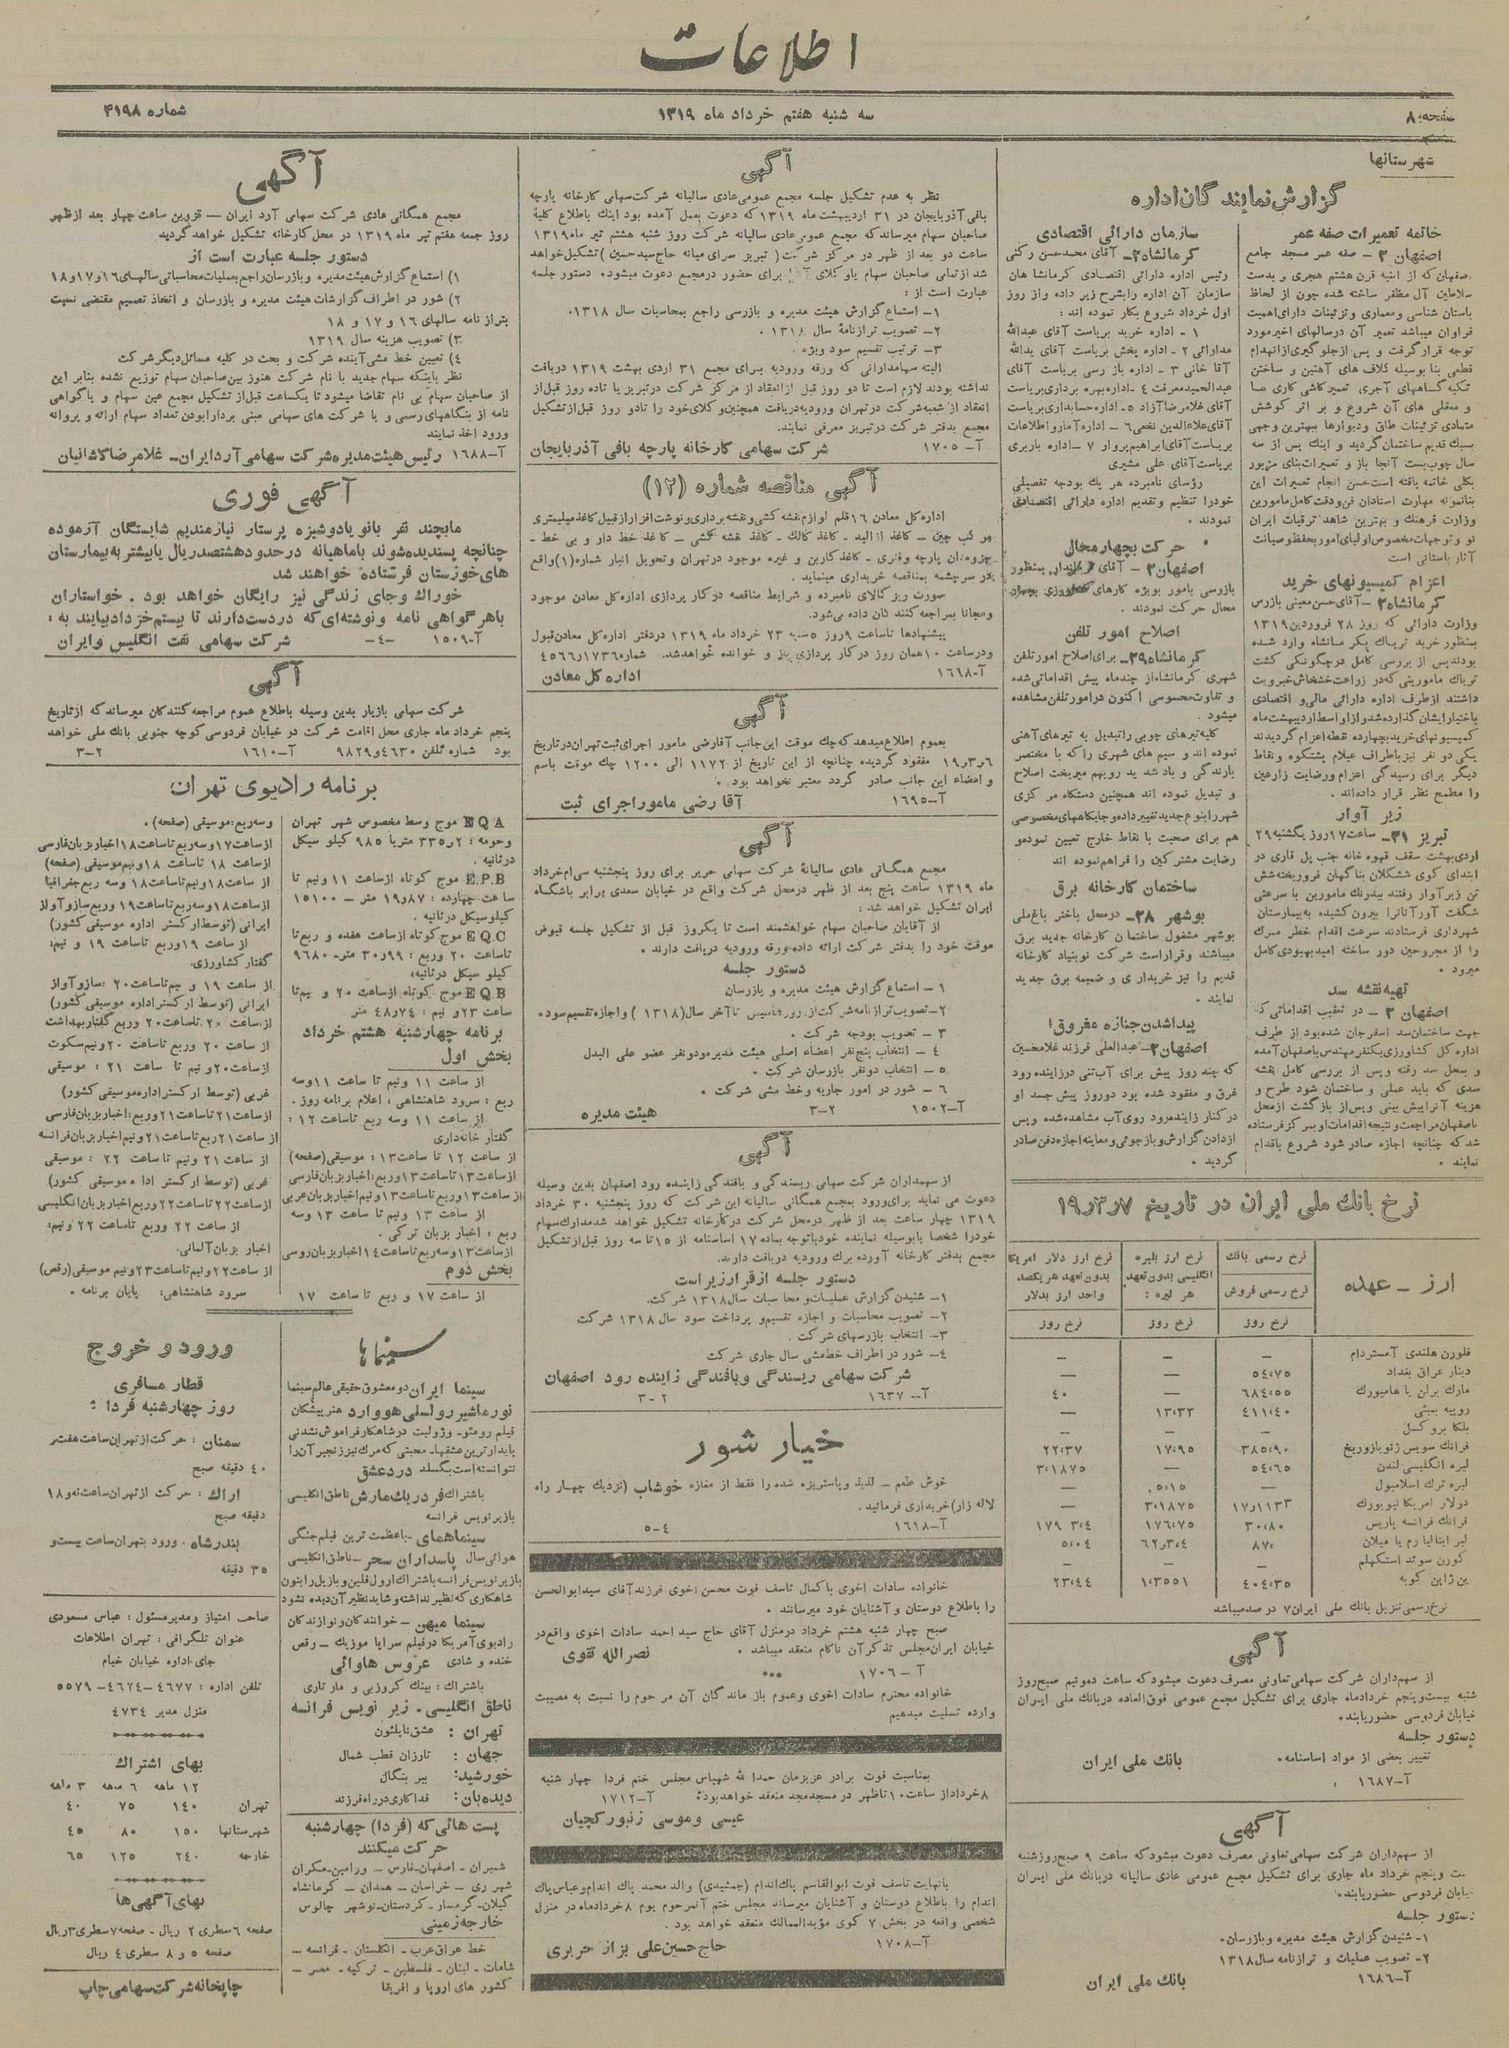 اطلاعات
صفحه ۸
سه شنبه هفتم خرداد ماه ۱۳۱۹
شماره ۴۱۹۸
شهرستانها
گزارش نمایندگان اداره
خاتمه تعمیرات صفه عمر
اصفهان ۳ - صفه عمر مسجد جامع
اصفهان که از ابنیه قرن هشتم هجری و بدست
سلاطین آل مظفر ساخته شده چون از لحاظ
باستان شناسی و معماری و تزئینات دارای اهمیت
فراوان میباشد تعمیر آن درسالهای اخیر مورد
توجه قرار گرفت و پس از جلوگیری از انهدام
قطعی بنا بوسیله کلاف های آهنین و ساختن
تکیه گاههای آجری تعمیر کاشی کاری ها
و معقلی های آن شروع و بر اثر کوشش
متمادی تزئینات طاق و دیوارها ببهترین وجهی
بسبک قدیم ساختمان گردید و اینک پس از سه
سال چوب بست آنجا باز و تعمیرات بنای مزبور
بکلی خاتمه یافته است حسن انجام تعمیرات این
بنا نمونه مهارت استادان فن و دقت کامل مامورین
وزارت فرهنگ و بهترین شاهد ترقیات ایران
نو و توجهات مخصوص اولیای امور بحفظ و صیانت
آثار باستانی است
اعزام کمیسیونهای خرید
کرمانشاه ۲ - آقای حسن معینی بازرس
وزارت دارائی که روز ۲۸ فروردین ۱۳۱۹
بمنظور خرید تریاک بکرمانشاه وارد شده
بودند پس از بررسی کامل درچگونگی کشت
تریاک مامورینی که در زراعت خشخاش خبرویت
داشتند از طرف اداره دارائی مالی و اقتصادی
باختیار ایشان گذارده شد و از اواسط اردیبهشت ماه
کمیسیونهای خرید بچهارده نقطه اعزام گردیدند
یکی دو نفر نیز باطراف عیلام پشتکوه و نقاط
دیگر برای رسیدگی اعزام و رضایت زارعین
را مطمح نظر قرار داده‌اند.
زیر آوار
تبریز ۳۱ - ساعت ۱۷ روز یکشنبه ۲۹
اردی بهشت سقف قهوه خانه جنب پل قاری در
ابتدای کوی ششکلان بناگهان فرو ریخته شش
تن زیر آوار رفتند بیدرنگ مامورین با سرعتی
شگفت آور آنانرا بیرون کشیده به بیمارستان
شهرداری فرستادند سرعت اقدام خطر مرگ
را از مجروحین دور ساخته امید بهبودی کامل
میرود.
تهیه نقشه سد
اصفهان ۳ - در تعقیب اقداماتی که
جهت ساختمان سد اسفرجان شده بود از طرف
اداره کل کشاورزی یکنفر مهندس باصفهان آمده
و بمحل سد رفته و پس از بررسی کامل نقشه
سدی که باید عملی و ساختمان شود طرح و
هزینه آنرا پیش بینی و پس از بازگشت از محل
باصفهان مراجعت و نتیجه اقدامات او بمرکز فرستاده
شد که چنانچه اجازه صادر شود شروع باقدام
نمایند.
سازمان دارائی اقتصادی
کرمانشاه ۲ - آقای محمد حسن رکنی
رئیس اداره دارائی اقتصادی کرمانشاهان
سازمان آن اداره را بشرح زیر داده و از روز
اول خرداد شروع بکار نموده اند:
۱ - اداره خرید بریاست آقای عبدالله
مدارائی ۲ - اداره پخش بریاست آقای یدالله
آقا خانی ۳ - اداره باز رسی بریاست آقای
عبدالحمید معرفت ۴ - اداره بهره برداری بریاست
آقای غلامرضا آزاد ۵ - اداره حسابداری بریاست
آقای علاءالدین نخعی ۶ - اداره آمار و اطلاعات
بریاست آقای ابراهیم پروار ۷ - اداره باربری
بریاست آقای علی مشیری
رؤسای نامبرده هر یک بودجه تفصیلی
خودرا تنظیم و تقدیم اداره دارائی اقتصادی
نمودند.
حرکت بچهار محال
اصفهان ۳ - آقای فرماندار بمنظور
بازرسی بامور بویژه کارهای کشاورزی بچهار
محال حرکت نمودند.
اصلاح امور تلفن
کرمانشاه ۲۹ - برای اصلاح امور تلفن
شهری کرمانشاه از چند ماه پیش اقداماتی شده
و تفاوت محسوسی اکنون در امور تلفن مشاهده
میشود.
کلیه تیرهای چوبی را تبدیل به تیرهای آهنی
نموده اند و سیم های شهری را که با مختصر
بارندگی و باد شدید رویهم میریخت اصلاح
و تبدیل نموده اند همچنین دستگاه مرکزی
شهر را بنوع جدید تغییر داده و جایگاههای مخصوصی
هم برای صحبت با نقاط خارج تعیین نموده و
رضایت مشترکین را فراهم نموده اند
ساختمان کارخانه برق
بوشهر ۲۸ - درمحل باختر باغ ملی
بوشهر مشغول ساختمان کارخانه جدید برق
میباشند و قرار است شرکت نوبنیاد کارخانه
قدیم را نیز خریداری و ضمیمه برق جدید
نمایند.
پیدا شدن جنازه مغروق!
اصفهان ۳ - عبدالعلی فرزند غلامحسین
که چند روز پیش برای آب تنی در زاینده رود
غرق و مفقود شده بود دو روز پیش جسد او
در کنار زاینده رود روی آب مشاهده شده و پس
از دادن گزارش و بازجوئی و معاینه اجازه دفن صادر
گردید.
نرخ بانک ملی ایران در تاریخ ۱۹٫۳٫۷
ارز - عهده
نرخ رسمی بانک
نرخ رسمی فروش
نرخ روز
نرخ ارز بلیره انگلیسی بدون تعهد هر لیره:
نرخ روز
نرخ ارز دلار امریکا بدون تعهد هر یکصد واحد ارز بدلار
نرخ روز
فلورن هلندی آمستردام — — —
دینار عراق بغداد ۵۴٫۷۵
مارک برلن یا هامبورک ۶۸۴٫۵۵ — ۴۰
روپیه بمبئی ۴۱۱٫۴۰ ۱۳٫۳۳ —
بلکا بروکسل — —
فرانک سویس ژنو یا زوریخ ۳۸۵٫۹۰ ۱۷٫۹۵ ۲۲٫۳۷
لیره انگلیسی لندن ۵۴٫۶۵ — ۳٫۱۸۷۵
لیره ترک اسلامبول — ۵٫۱۵ —
دولار امریکا نیویورک ۱۷٫۱۱۳۳ ۳٫۱۸۷۵ —
فرانک فرانسه پاریس ۳۰٫۸۰ ۱۷۶٫۷۵
لیر ایتالیا رم یا میلان
کورن سوئد استکهلم — —
ین ژاپن کوبه ۴۰۴٫۳۵ ۱٫۳۵۵۱ ۲۳٫۴۴
نرخ رسمی تنزیل بانک ملی ایران ۷ در صد میباشد
آگهی
از سهم‌داران شرکت سهامی تعاونی مصرف دعوت میشود که ساعت ده و نیم صبح روز
شنبه بیست و پنجم خرداد ماه جاری برای تشکیل مجمع عمومی فوق العاده در بانک ملی ایران
خیابان فردوسی حضور یابند.
دستور جلسه
تغییر بعضی از مواد اساسنامه.
آ-۱۶۸۷
بانک ملی ایران
آگهی
از سهم‌داران شرکت سهامی تعاونی مصرف دعوت میشود که ساعت ۹ صبح روز شنبه
بیست و پنجم خرداد ماه جاری برای تشکیل مجمع عمومی عادی سالیانه در بانک ملی ایران
خیابان فردوسی حضور یابند.
دستور جلسه
۱- شنیدن گزارش هیئت مدیره و بازرسان.
۲- تصویب عملیات و ترازنامه سال ۱۳۱۸
آ-۱۶۸۶
بانک ملی ایران
آگهی
نظر به عدم تشکیل جلسه مجمع عمومی عادی سالیانه شرکت سهامی کارخانه پارچه
بافی آذربایجان در ۳۱ اردیبهشت ماه ۱۳۱۹ که دعوت بعمل آمده بود اینک باطلاع کلیة
صاحبان سهام میرساند که مجمع عمومی عادی سالیانه شرکت روز شنبه هشتم تیر ماه ۱۳۱۹
ساعت دو بعد از ظهر در مرکز شرکت (تبریز سرای میانه حاج سید حسین) تشکیل خواهد
شد از تمامی صاحبان سهام یا وکلای آنها برای حضور در مجمع دعوت میشود. دستور جلسه
عبارت است از:
۱- استماع گزارش هیئت مدیره و بازرسی راجع بمحاسبات سال ۱۳۱۸.
۲- تصویب ترازنامهٔ سال ۱۳۱۸.
۳- ترتیب تقسیم سود ویژه.
البته سهامدارانی که ورقه ورودیه برای مجمع ۳۱ اردی بهشت ۱۳۱۹ دریافت
نداشته بودند لازم است تا دو روز قبل از انعقاد از مرکز شرکت در تبریز یا تا ده روز قبل از
انعقاد از شعبه شرکت در تهران ورودیه دریافت همچنین وکلای خود را تا دو روز قبل از تشکیل
مجمع بدفتر شرکت در تبریز معرفی نمایند.
آ- ۱۷۰۵
شرکت سهامی کارخانه پارچه بافی آذربایجان
آگهی مناقصه شماره (۱۲)
اداره کل معادن ۱۶ قلم لوازم نقشه کشی و نقشه برداری و نوشت افزار از قبیل کاغذ میلیمتری
مرکب چین - کاغذ ازالید - کاغذ کالک - کاغذ نقشه کشی - کاغذ خط دار و بی خط -
جزوه‌دان پارچه و فنری - کاغذ کاربن و غیره موجود در تهران و تحویل انبار شماره (۱) واقع
در سرچشمه بمناقصه خریداری مینماید.
صورت ریز کالای نامبرده و شرایط مناقصه در کار پردازی اداره کل معادن موجود
و مجانا بمراجعه کنندگان داده می‌شود.
پیشنهادها تا ساعت ۹ روز ۵ شنبه ۲۳ خرداد ماه ۱۳۱۹ در دفتر اداره کل معادن قبول
و در ساعت ۱۰ همان روز در کار پردازی باز و خوانده خواهد شد. شماره ۱۷۳۶ر۴۵۶۶
آ-۱۶۶۸
اداره کل معادن
آگهی
بعموم اطلاع میدهد که چک موقت این جانب آقا رضی مامور اجرای ثبت تهران در تاریخ
۱۹٫۳٫۶ مفقود گردیده چنانچه از این تاریخ از ۱۱۷۲ الی ۱۲۰۰ چک موقت باسم
و امضاء این جانب صادر گردد معتبر نخواهد بود.
آ-۱۶۹۵
آقا رضی مامور اجرای ثبت
آگهی
مجمع همگانی عادی سالیانهٔ شرکت سهامی حریر برای روز پنجشنبه سی‌ام خرداد
ماه ۱۳۱۹ ساعت پنج بعد از ظهر در محل شرکت واقع در خیابان سعدی برابر باشگاه
ایران تشکیل خواهد شد:
از آقایان صاحبان سهام خواهشمند است تا یکروز قبل از تشکیل جلسه قبوض
موقت خود را بدفتر شرکت ارائه داده ورقه ورودیه دریافت دارند.
دستور جلسه
۱ - استماع گزارش هیئت مدیره و بازرسان
۲- تصویب ترازنامه شرکت از روز تاسیس تا آخر سال (۱۳۱۸) و اجازه تقسیم سود.
۳ - تصویب بودجه شرکت.
۴ - انتخاب پنج نفر اعضاء اصلی هیئت مدیره و دو نفر عضو علی البدل
۵ - انتخاب دو نفر بازرسان شرکت.
۶ - شور در امور جاریه و خط مشی شرکت.
آ-۱۵۰۲
۲-۳
هیئت مدیره
آگهی
از سهمداران شرکت سهامی ریسندگی و بافندگی زاینده رود اصفهان بدین وسیله
دعوت می نماید برای ورود بمجمع همگانی سالیانه این شرکت که روز پنجشنبه ۳۰ خرداد
۱۳۱۹ چهار ساعت بعد از ظهر در محل شرکت در کارخانه تشکیل خواهد شد مدارک سهام
خود را شخصا یا بوسیله نماینده خود با توجه بماده ۱۷ اساسنامه از ۱۵ تا سه روز قبل از تشکیل
مجمع بدفتر کارخانه آورده برگ ورودیه دریافت دارند.
دستور جلسه از قرار زیر است
۱- شنیدن گزارش عملیات و محاسبات سال ۱۳۱۸ شرکت.
۲- تصویب محاسبات و اجازه تقسیم و پرداخت سود سال ۱۳۱۸ شرکت
۳- انتخاب بازرسهای شرکت.
۴- شور در اطراف خط مشی سال جاری شرکت
شرکت سهامی ریسندگی و بافندگی زاینده رود اصفهان
آ- ۱۶۳۷
۲-۳
خیار شور
خوش طعم - لذیذ و پاستریزه شده را فقط از مغازه خوشاب (نزدیک چهار راه
لاله زار) خریداری فرمائید.
آ-۱۶۱۸
۴-۵
خانواده سادات اخوی با کمال تاسف فوت محسن اخوی فرزند آقای سید ابوالحسن
را باطلاع دوستان و آشنایان خود میرسانند.
صبح چهار شنبه هشتم خرداد در منزل آقای حاج سید احمد سادات اخوی واقع در
خیابان ایران مجلس تذکر آن ناکام منعقد میباشد.
نصرالله تقوی
آ - ۱۷۰۶
خانواده محترم سادات اخوی و عموم باز ماندگان آن مرحوم را نسبت به مصیبت
وارده تسلیت میدهیم
بمناسبت فوت برادر عزیزمان حمدالله شهپاس مجلس ختم فردا چهار شنبه
۸ خرداد از ساعت ۱۰ تا ظهر در مسجد مجد منعقد خواهد بود.
آ-۱۷۱۲
عیسی و موسی زنبورکچیان
بانهایت تاسف فوت ابوالقاسم پاک اندام (جمشیدی) والد محمد پاک اندام و عباس پاک
اندام را باطلاع دوستان و آشنایان میرساند مجلس ختم آنمرحوم یوم ۸ خرداد ماه در منزل
شخصی واقعه در بخش ۷ کوی مؤیدالممالک منعقد خواهد بود.
آ-۱۷۰۸
حاج حسین علی بزاز حریری
آگهی
مجمع همگانی عادی شرکت سهامی آرد ایران - قزوین ساعت چهار بعد از ظهر
روز جمعه هفتم تیر ماه ۱۳۱۹ در محل کارخانه تشکیل خواهد گردید
دستور جلسه عبارت است از
۱) استماع گزارش هیئت مدیره و بازرسان راجع بعملیات محاسباتی سالهای ۱۶ و ۱۷ و ۱۸
۲) شور در اطراف گزارشات هیئت مدیره و بازرسان و اتخاذ تصمیم مقتضی نسبت
بترازنامه سالهای ۱۶ و ۱۷ و ۱۸
۳) تصویب هزینه سال ۱۳۱۹
۴) تعیین خط مشی آینده شرکت و بحث در کلیه مسائل دیگر شرکت
نظر باینکه سهام جدید با نام شرکت هنوز بین صاحبان سهام توزیع نشده بنابر این
از صاحبان سهام بی نام تقاضا میشود تا یکساعت قبل از تشکیل مجمع عین سهام و یا گواهی
نامه از بنگاههای رسمی و یا شرکت های سهامی مبنی بردارا بودن تعداد سهام ارائه و پروانه
ورود اخذ نمایند
آ-۱۶۸۸
رئیس هیئت مدیره شرکت سهامی آرد ایران - غلامرضا کاشانیان
آگهی فوری
مابچند نفر بانو یا دوشیزه پرستار نیازمندیم شایستگان آزموده
چنانچه پسندیده شوند با ماهیانه در حدود هشتصد ریال یا بیشتر به بیمارستان
های خوزستان فرستاده خواهند شد
خوراک و جای زندگی نیز رایگان خواهد بود. خواستاران
باهر گواهی نامه و نوشته‌ای که در دست دارند تا بیستم خرداد بیایند به:
آ-۱۵۰۹
-۴-
شرکت سهامی نفت انگلیس و ایران
آگهی
شرکت سهامی بازیار بدین وسیله باطلاع عموم مراجعه کنندگان میرساند که از تاریخ
پنجم خرداد ماه جاری محل اقامت شرکت در خیابان فردوسی کوچه جنوبی بانک ملی خواهد
بود شماره تلفن ۴۶۳۰ و ۹۸۲۹ آ-۱۶۱۰ ۲-۳
برنامه رادیوی تهران
EQA موج وسط مخصوص شهر تهران
و حومه: ۳۳۵٫۲ متر یا ۹۸۵ کیلو سیکل
در ثانیه.
E.P.B موج کوتاه از ساعت ۱۱ و نیم تا
ساعت چهارده: ۱۹٫۸۷ متر - ۱۵۱۰۰
کیلوسیکل در ثانیه.
EQC موج کوتاه از ساعت هفده و ربع تا
تا ساعت ۲۰ و ربع: ۳۰٫۹۹ متر - ۹۶۸۰
کیلو سیکل در ثانیه؛
EQB موج کوتاه از ساعت ۲۰ و نیم تا
ساعت ۲۳ و نیم: ۴۸٫۷۴ متر
برنامه چهارشنبه هشتم خرداد
بخش اول
از ساعت ۱۱ و نیم تا ساعت ۱۱ و سه
ربع: سرود شاهنشاهی، اعلام برنامه روز.
از ساعت ۱۱ و سه ربع تا ساعت ۱۲:
گفتار خانه‌داری
از ساعت ۱۲ تا ساعت ۱۳: موسیقی (صفحه)
از ساعت ۱۳ تا ساعت ۱۳ و ربع: اخبار بزبان فارسی
از ساعت ۱۳ و ربع تا ساعت ۱۳ و نیم اخبار بزبان عربی
از ساعت ۱۳ و نیم تا ساعت ۱۳ و سه
ربع: اخبار بزبان ترکی.
از ساعت ۱۳ و سه ربع تا ساعت ۱۴ اخبار بزبان روسی
بخش دوم
از ساعت ۱۷ و ربع تا ساعت ۱۷
و سه ربع: موسیقی (صفحه).
از ساعت ۱۷ و سه ربع تا ساعت ۱۸ اخبار بزبان فارسی
از ساعت ۱۸ تا ساعت ۱۸ و نیم موسیقی. (صفحه)
از ساعت ۱۸ و نیم تا ساعت ۱۸ و سه ربع جغرافیا
از ساعت ۱۸ و سه ربع تا ساعت ۱۹ و ربع ساز و آواز
ایرانی (توسط ارکستر اداره موسیقی کشور)
از ساعت ۱۹ و ربع تا ساعت ۱۹ و نیم:
گفتار کشاورزی.
از ساعت ۱۹ و نیم تا ساعت ۲۰: ساز و آواز
ایرانی (توسط ارکستر اداره موسیقی کشور)
از ساعت ۲۰ تا ساعت ۲۰ و ربع گفتار بهداشت
از ساعت ۲۰ و ربع تا ساعت ۲۰ و نیم سکوت
از ساعت ۲۰ و نیم تا ساعت ۲۱: موسیقی
غربی (توسط ارکستر اداره موسیقی کشور)
از ساعت ۲۱ تا ساعت ۲۱ و ربع: اخبار بزبان فارسی
از ساعت ۲۱ ربع تا ساعت ۲۱ و نیم اخبار بزبان فرانسه
از ساعت ۲۱ و نیم تا ساعت ۲۲: موسیقی
غربی (توسط ارکستر اداره موسیقی کشور)
از ساعت ۲۲ تا ساعت ۲۲ و ربع اخبار بزبان انگلیسی
از ساعت ۲۲ و ربع تا ساعت ۲۲ و نیم:
اخبار بزبان آلمانی.
از ساعت ۲۲ و نیم تا ساعت ۲۳ و نیم موسیقی (رقص)
سرود شاهنشاهی: پایان برنامه.
سینماها
سینما ایران دو معشوق حقیقی عالم سینما
نورماشیرر و لسلی هووارد هنرپیشگان
فیلم رومئو - و ژولیت در شاهکار فراموش نشدنی
پایدارترین عشقها - محبتی که مرگ نیز زنجیر آن را
نتوانسته است بگسلد درد عشق
باشتراک فردریک مارش ناطق انگلیسی
با زیرنویس فرانسه
سینماهمای - باعظمت ترین فیلم جنگی
هوائی سال پاسداران سحر - ناطق انگلیسی
با زیر نویس فرانسه باشتراک ارول فلین و بازیل رابتون
شاهکاری که نظیر نداشته و شاید نظیر آن دیده نشود
سینما میهن - خوانندگان و نوازندگان
رادیوی آمریکا در فیلم سراپا موزیک - رقص
خنده و شادی عروس هاوائی
باشتراک: بینک کروزبی و مارتاری
ناطق انگلیسی - زیر نویس فرانسه
تهران: عشق ناپلئون
جهان: تارزان قطب شمال
خورشید: ببر بنگال
دیده‌بان: فداکاری در راه فرزند
پست هائی که (فردا) چهارشنبه
حرکت میکنند
شمیران - اصفهان - فارس - ورامین - مکران
شهر ری - خراسان - همدان - کرمانشاه
گیلان - گرمسار - کردستان - نوشهر چالوس
خارجه زمینی
خط عراق عرب - انگلستان - فرانسه -
شامات - لبنان - فلسطین - ترکیه - مصر -
کشورهای اروپا و افریقا
ورود و خروج
قطار مسافری
روز چهارشنبه فردا:
سمنان: حرکت از تهران ساعت هفت و
۴۰ دقیقه صبح
اراک: حرکت از تهران ساعت نه و ۱۸
دقیقه صبح
بندرشاه - ورود بتهران ساعت بیست و
۳۵ دقیقه
صاحب امتیاز و مدیر مسئول: عباس مسعودی
عنوان تلگرافی: تهران اطلاعات
جای اداره خیابان خیام
تلفن اداره: ۴۶۷۷-۴۶۷۴-۵۵۷۹
منزل مدیر ۴۷۳۴
بهای اشتراک
۱۲ ماهه ۶ ماهه ۳ ماهه
تهران ۱۴۰ ۷۵ ۴۰
شهرستانها ۱۵۰ ۸۰ ۴۵
خارجه ۲۴۰ ۱۲۵ ۶۵
بهای آگهی‌ها
صفحه ۶ سطری ۲ ریال - صفحه ۷ سطری ۳ ریال
صفحه ۵ و ۸ سطری ۴ ریال
چاپخانه شرکت سهامی چاپ